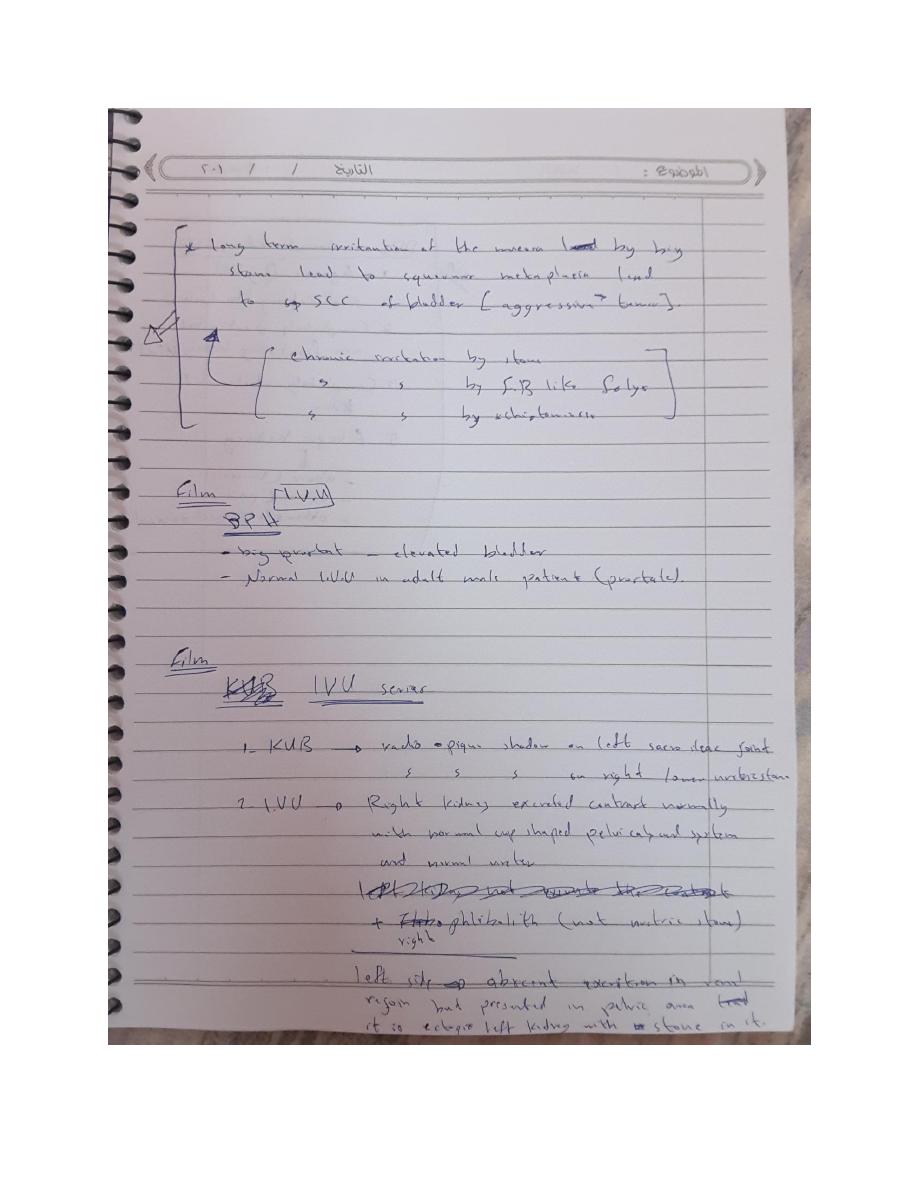 الموضوع : التاريخ / / ٢٠١
* Long term irritation of the mucosa by big
stone lead to squamous metaplasia lead
to SCC of bladder [aggressive tumor].
chronic irritation by stone
s s by F.B like Folys
s s by schistomiasis
Film I.V.U
BPH
- big prostat - elevated bladder
- Normal I.V.U in adult male patient (prostate).
Film
KUB IVU series
1- KUB → radio opique shadow on left sacro ileac joint
s s s on right lower
2- IVU → Right kidney excreted contrast normally
with normal cup shaped system
and normal ureter
left kidney not the contrast
+ phlibolith (not uretric stone)
right
left side → abscent excrition in renal
regoin but presented in pelvic area
it is ectopic left kidney with stone in it.